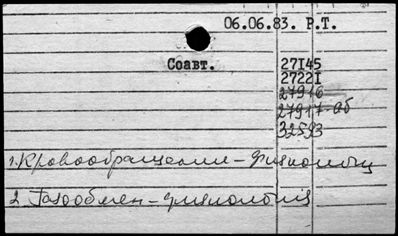 06.06.83. Р.Т.
Соавт.
27145
27221
27916
27917-об
32593
1. Кровообращение - физиология
2. Газообмен - физиология